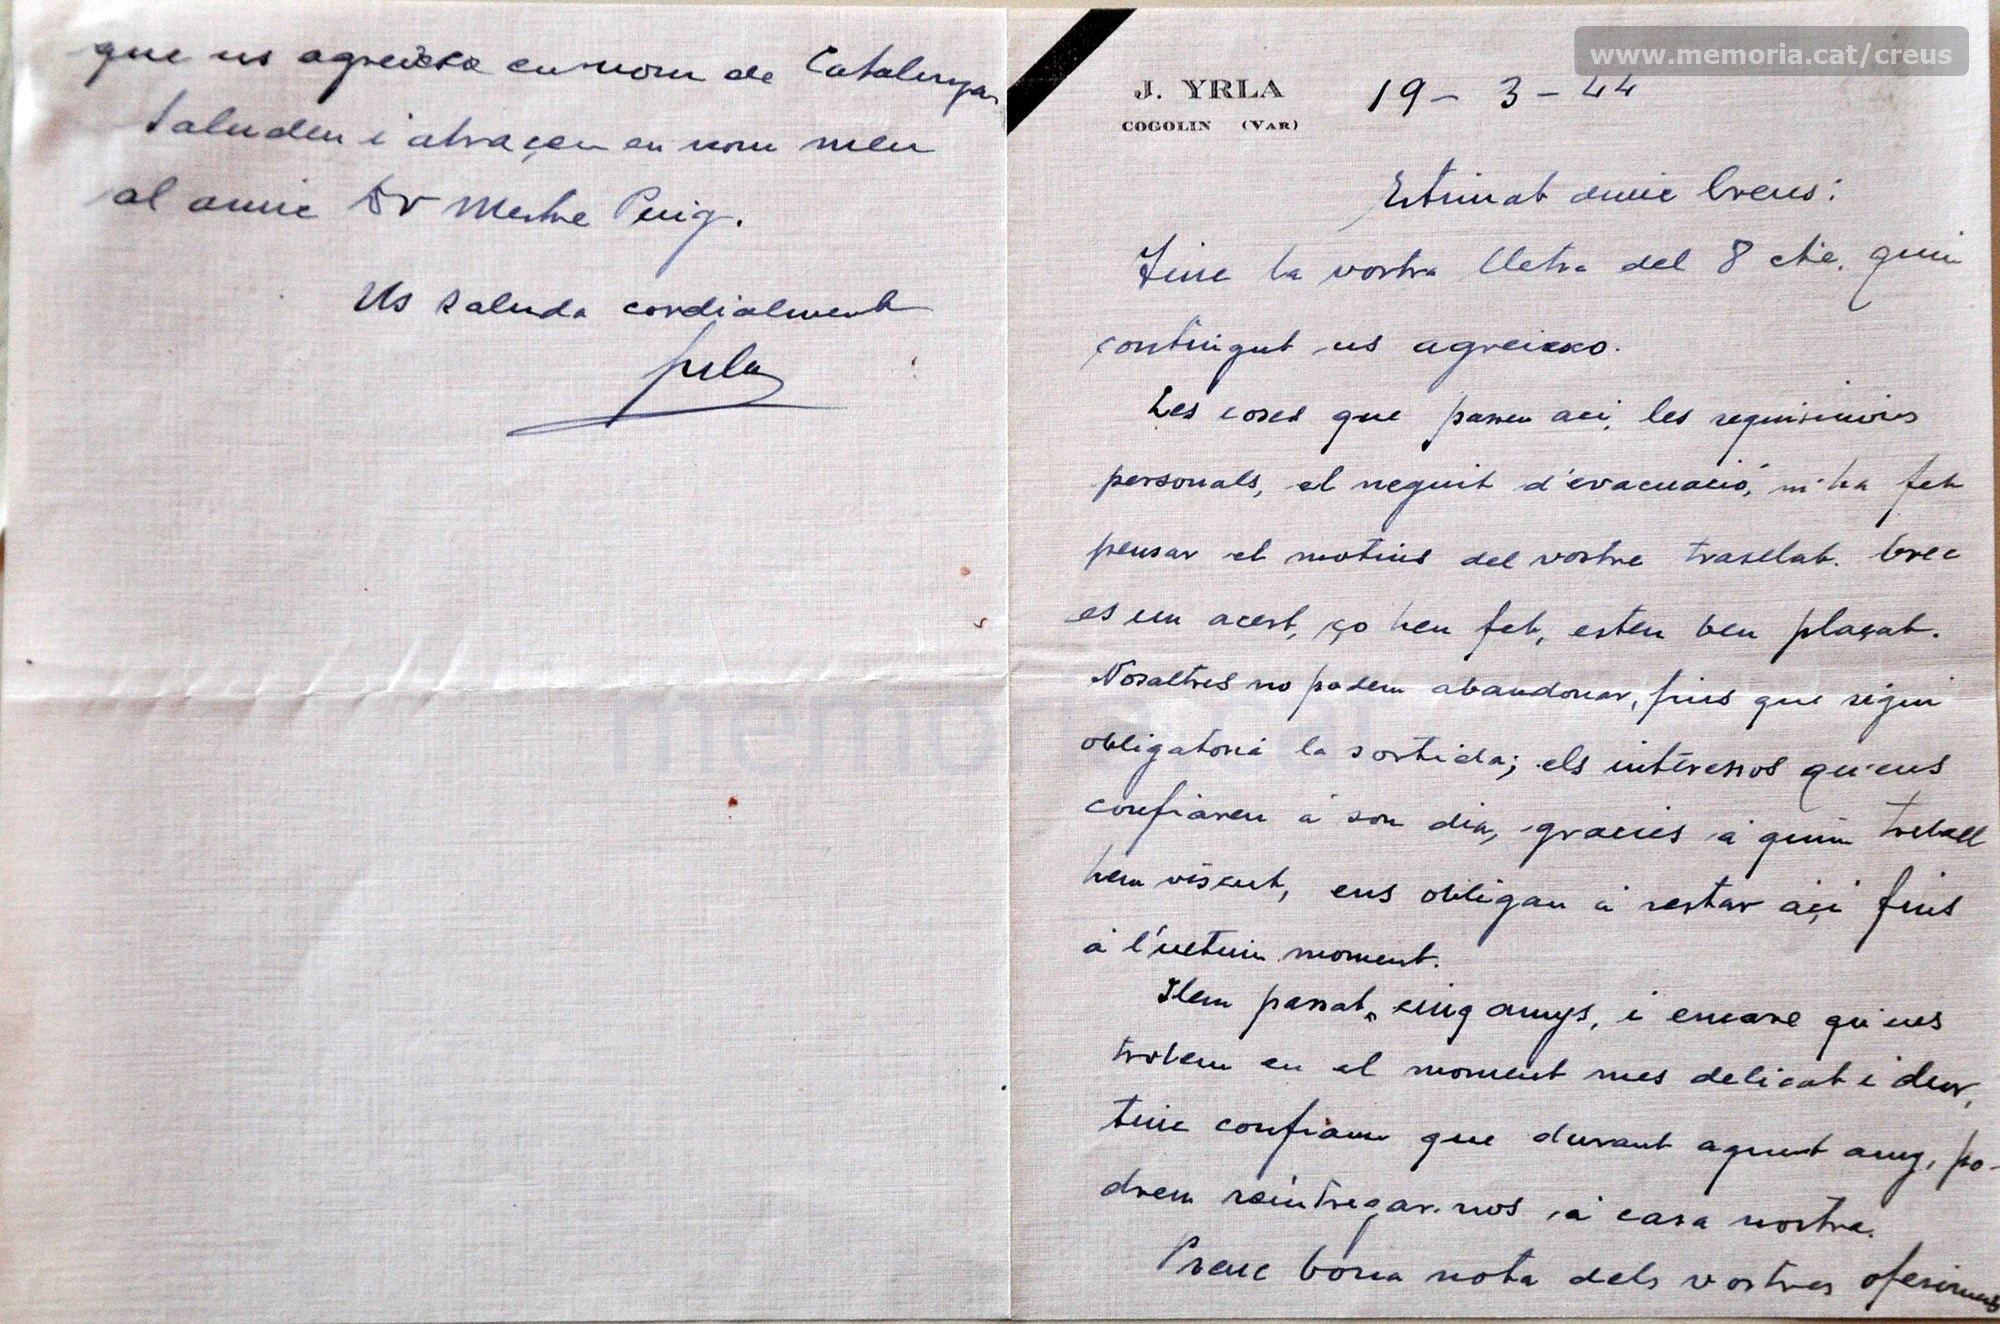 www.memoria.cat/creus
J. YRLA
COGOLIN (VAR)
19 - 3 - 44
Estimat amic Creus:
Tinc la vostra lletra del 8 cte. quin
contingut us agreixxo.
Les coses que passen aci, les requisicions
personals, el neguit d'evacuació, m'ha fet
pensar el motius del vostre trasllat. Crec
es un acert, ço heu fet, esteu ben plaçat.
Nosaltres no podem abandonar, fins que sigui
obligatoria la sortida; els interessos qu'ens
confiaren a son dia, gracies a quin treball
hem viscut, ens obligan a restar açi fins
a l'ultim moment.
Hem passat cinq anys, i encare qu'ens
trobem en el moment mes delicat i dur,
tinc confiam que durant aquest any, po-
drem reintregar-nos a casa nostra.
Prenc bona nota dels vostres oferiments
que us agreixxo en nom de Catalunya
Saluden i abraçeu en nom meu
al amic Dr Mestre Puig.
Us saluda cordialment
Yrla
memoria.cat